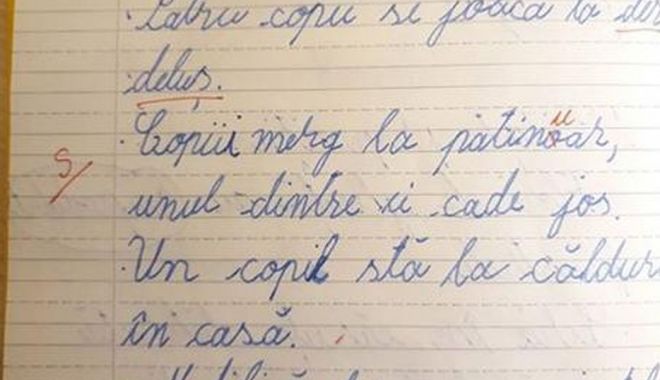 Patru copii se joacă la der
deluș.
Copiii merg la patinoar,
u
S/
unul dintre ei cade jos.
Un copil stă la căldur
în casă.